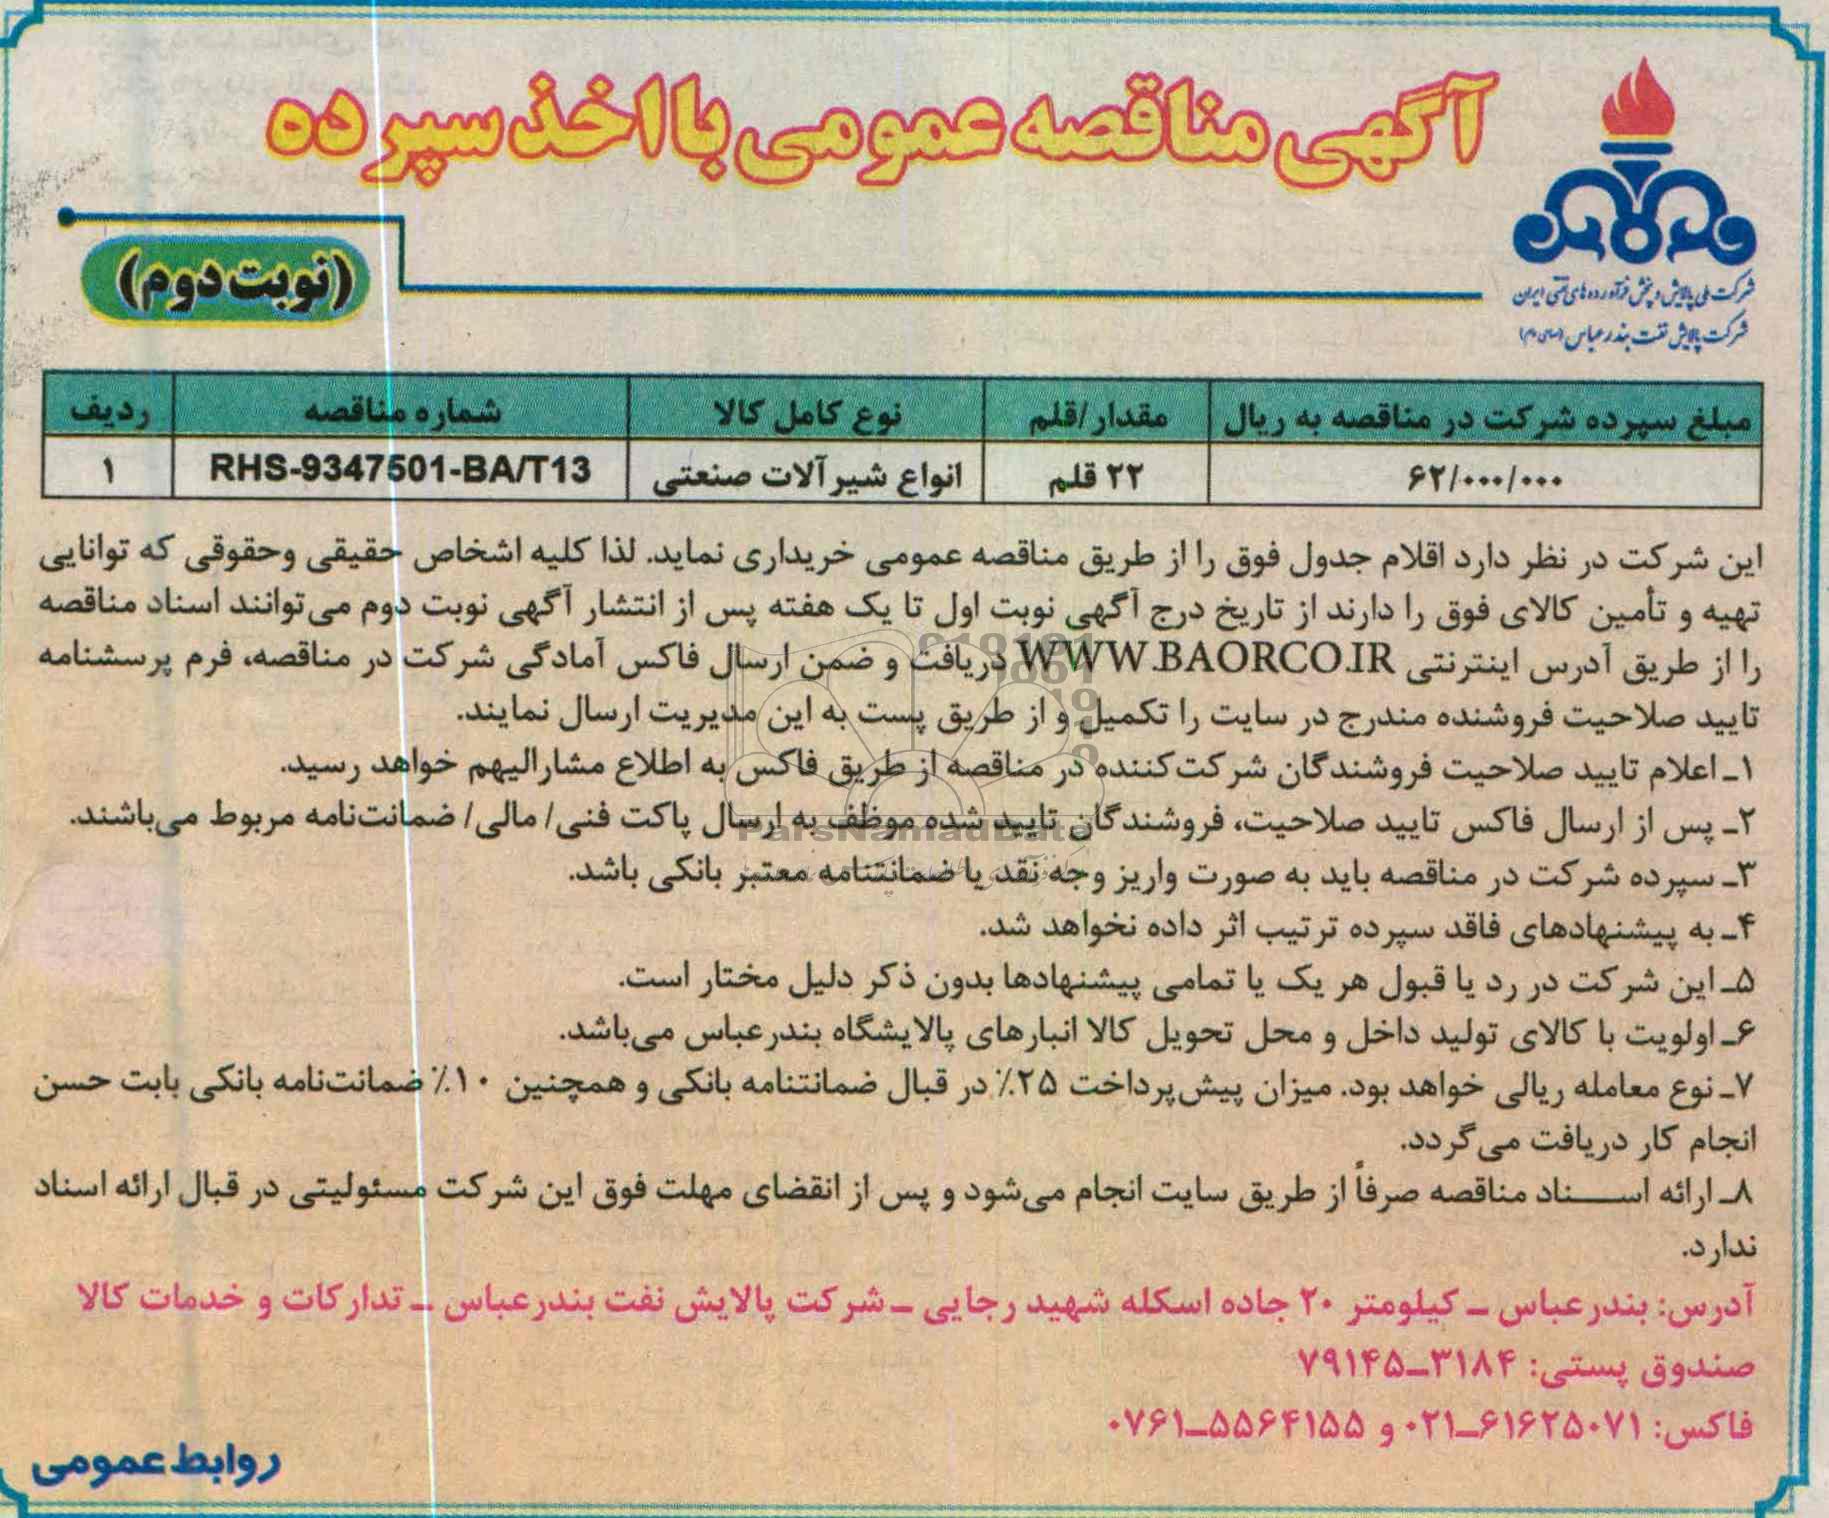 آگهی مناقصه عمومی با اخذ سپرده
(نوبت دوم)
شرکت ملی پالایش و پخش فرآورده‌های نفتی ایران
شرکت پالایش نفت بندرعباس (سهامی عام)
ردیف	شماره مناقصه	نوع کامل کالا	مقدار/قلم	مبلغ سپرده شرکت در مناقصه به ریال
۱	RHS-9347501-BA/T13	انواع شیرآلات صنعتی	۲۲ قلم	۶۲/۰۰۰/۰۰۰
این شرکت در نظر دارد اقلام جدول فوق را از طریق مناقصه عمومی خریداری نماید. لذا کلیه اشخاص حقیقی وحقوقی که توانایی
تهیه و تأمین کالای فوق را دارند از تاریخ درج آگهی نوبت اول تا یک هفته پس از انتشار آگهی نوبت دوم می‌توانند اسناد مناقصه
را از طریق آدرس اینترنتی WWW.BAORCO.IR دریافت و ضمن ارسال فاکس آمادگی شرکت در مناقصه، فرم پرسشنامه
تایید صلاحیت فروشنده مندرج در سایت را تکمیل و از طریق پست به این مدیریت ارسال نمایند.
۱ـ اعلام تایید صلاحیت فروشندگان شرکت‌کننده در مناقصه از طریق فاکس به اطلاع مشارالیهم خواهد رسید.
۲ـ پس از ارسال فاکس تایید صلاحیت، فروشندگان تایید شده موظف به ارسال پاکت فنی/ مالی/ ضمانت‌نامه مربوط می‌باشند.
ParsNamadData
۳ـ سپرده شرکت در مناقصه باید به صورت واریز وجه نقد یا ضمانتنامه معتبر بانکی باشد.
۴ـ به پیشنهادهای فاقد سپرده ترتیب اثر داده نخواهد شد.
۵ـ این شرکت در رد یا قبول هر یک یا تمامی پیشنهادها بدون ذکر دلیل مختار است.
۶ـ اولویت با کالای تولید داخل و محل تحویل کالا انبارهای پالایشگاه بندرعباس می‌باشد.
۷ـ نوع معامله ریالی خواهد بود. میزان پیش‌پرداخت ۲۵٪ در قبال ضمانتنامه بانکی و همچنین ۱۰٪ ضمانت‌نامه بانکی بابت حسن
انجام کار دریافت می‌گردد.
۸ـ ارائه اسناد مناقصه صرفاً از طریق سایت انجام می‌شود و پس از انقضای مهلت فوق این شرکت مسئولیتی در قبال ارائه اسناد
ندارد.
آدرس: بندرعباس ـ کیلومتر ۲۰ جاده اسکله شهید رجایی ـ شرکت پالایش نفت بندرعباس ـ تدارکات و خدمات کالا
صندوق پستی: ۳۱۸۴ـ۷۹۱۴۵
فاکس: ۶۱۶۲۵۰۷۱ـ۰۲۱ و ۵۵۶۴۱۵۵ـ۰۷۶۱
روابط عمومی